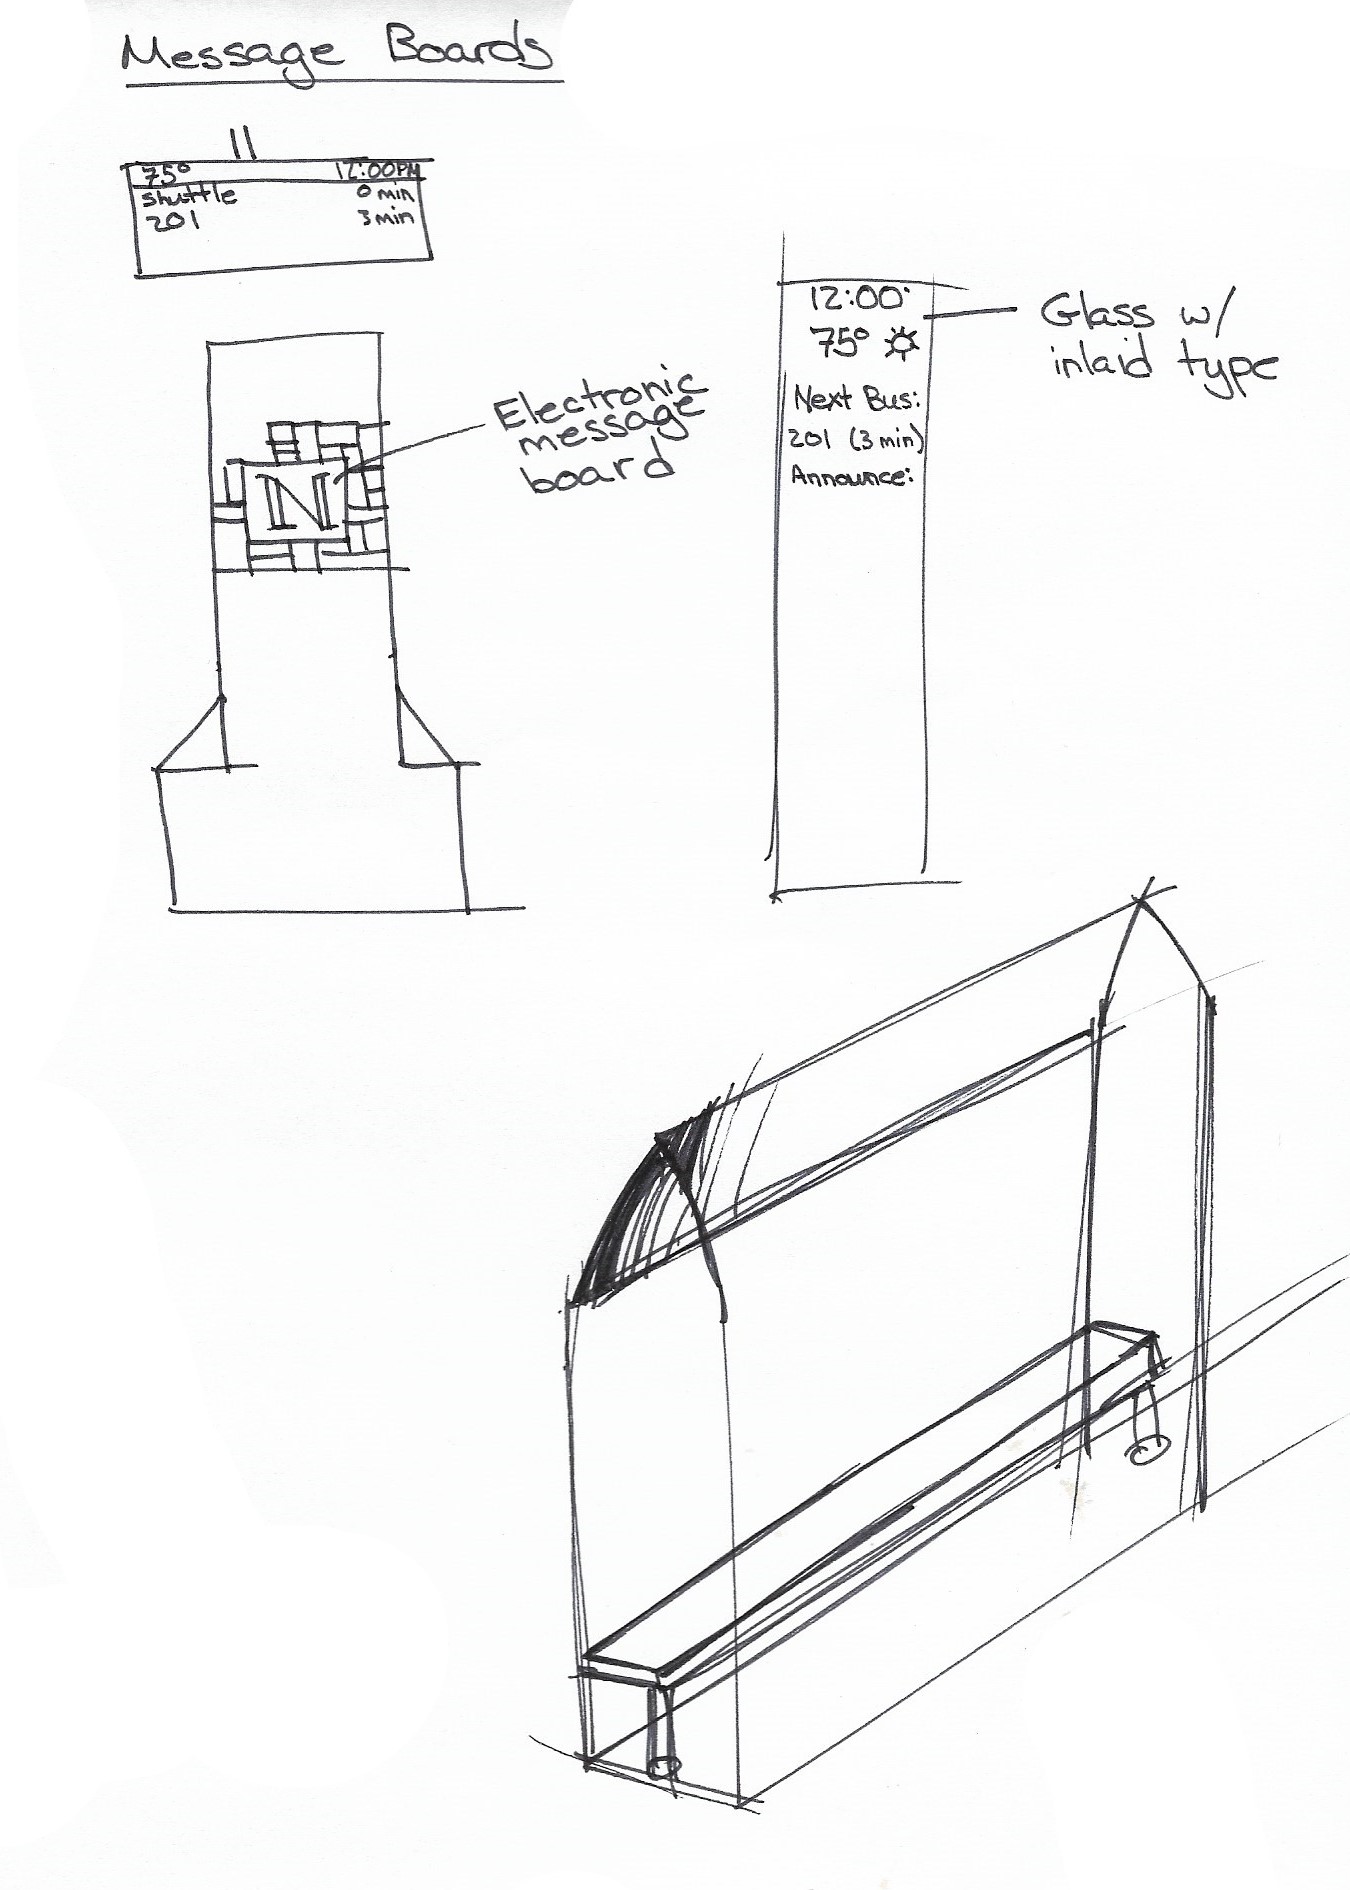 Message Boards
75° 12:00PM
shuttle 0 min
201 3 min
Electronic
message
board
N
12:00
75°
Next Bus:
201 (3 min)
Announce:
Glass w/
inlaid type